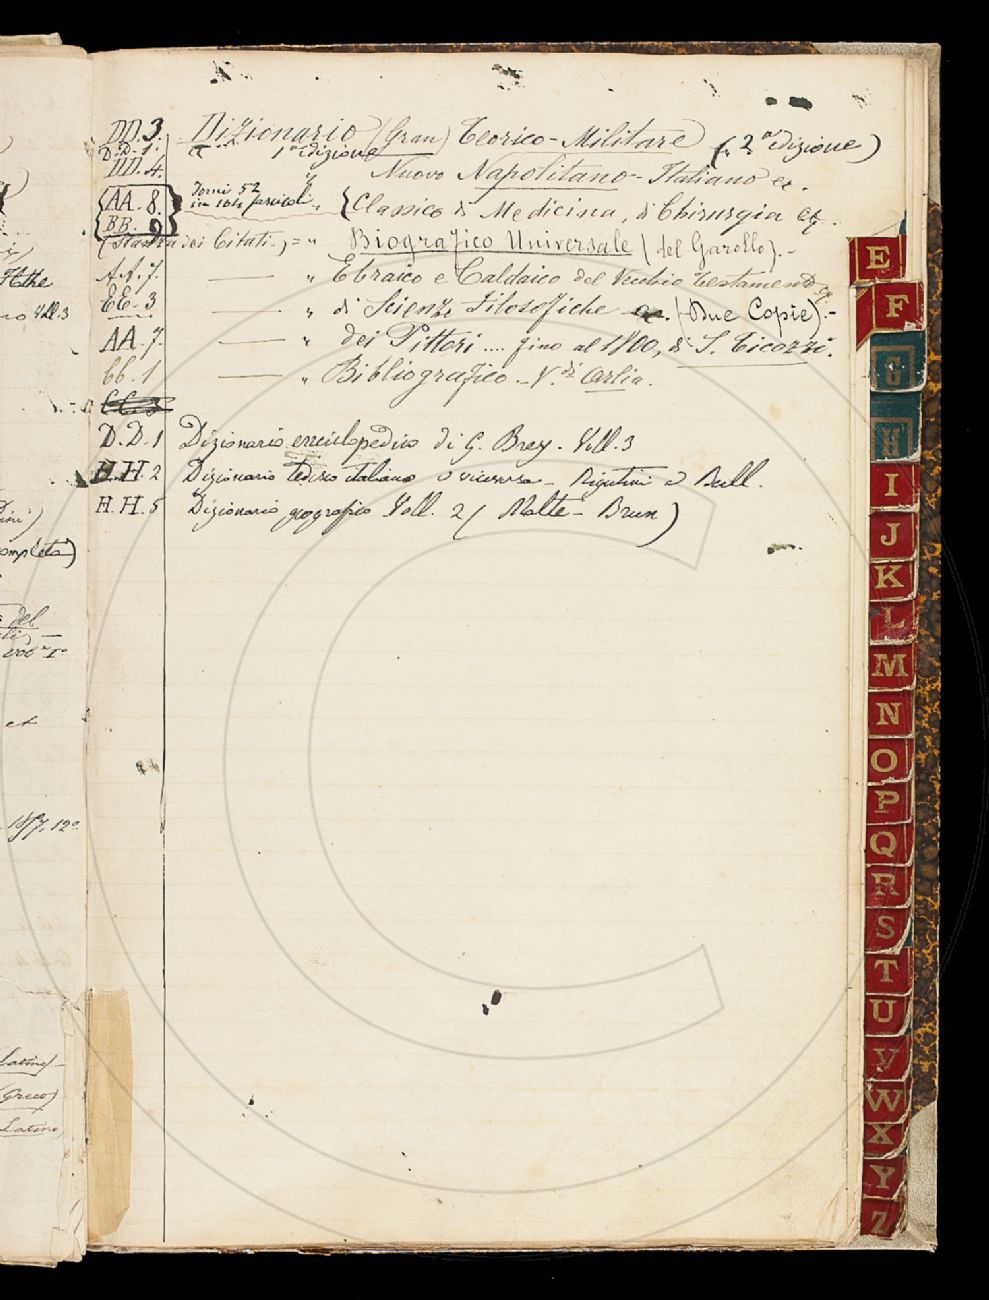 DD. 3. Dizionario (Gran) Teorico-Militare („ 2ª edizione)
D.D. 1. 1ª edizione
DD. 4. „ Nuovo Napolitano-Italiano ec.
AA. 8. Tomi 52 in 104 fascicoli „ Classico di Medicina, di Chirurgia ec.
BB. 9
(Stanza dei Citati.) = „ Biografico Universale (del Garollo). -
AA. 7. — „ Ebraico e Caldaico del Vecchio Testamento
EE. 3 — „ di Scienze Filosofiche ec. (Due Copie). -
AA. 7. — „ dei Pittori .... fino al 1800, di S. Ticozzi.
bb. 1 — „ Bibliografico - V.di Arlia.
CC. 3
D. D. 1 Dizionario enciclopedico di G. Brey. Voll. 3
H. H. 2 Dizionario tedesco italiano e viceversa - Rigutini e Bull.
H. H. 5 Dizionario geografico Voll. 2 (Malte-Brun)
E
F
G
H
I
J
K
L
M
N
O
P
Q
R
S
T
U
V
W
X
Y
Z
Voll. 3
del
1857, 12º
Latino
(Greco)
Latino,